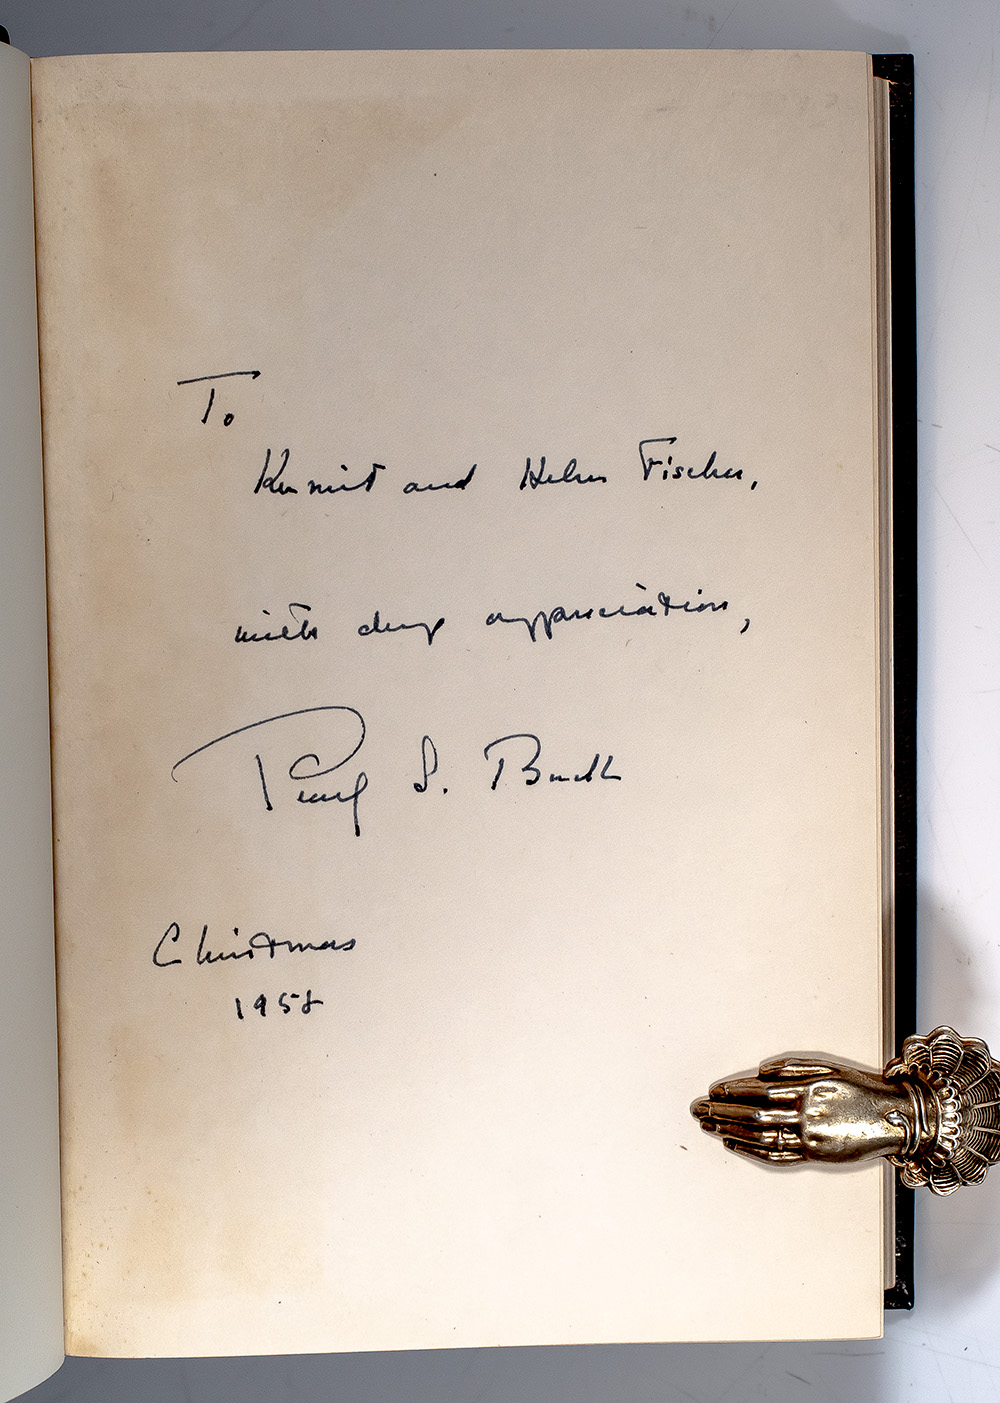 To
Kermit and Helen Fischer,
with deep appreciation,
Pearl S. Buck
Christmas
1958